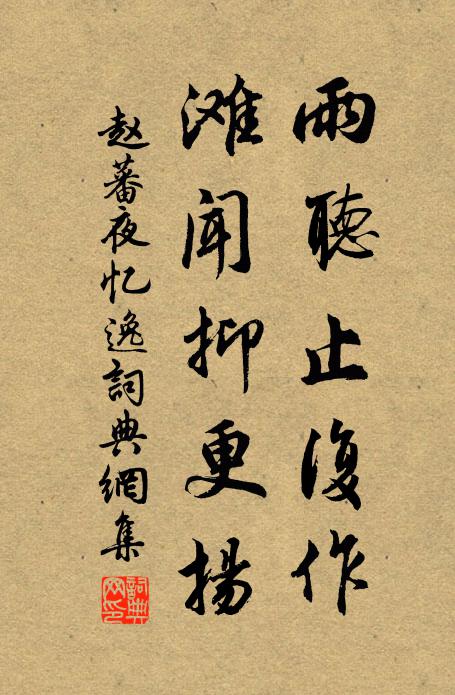 雨聽止復作
滩闻抑更揚
赵蕃夜忆逸詞典網集
詞典網印